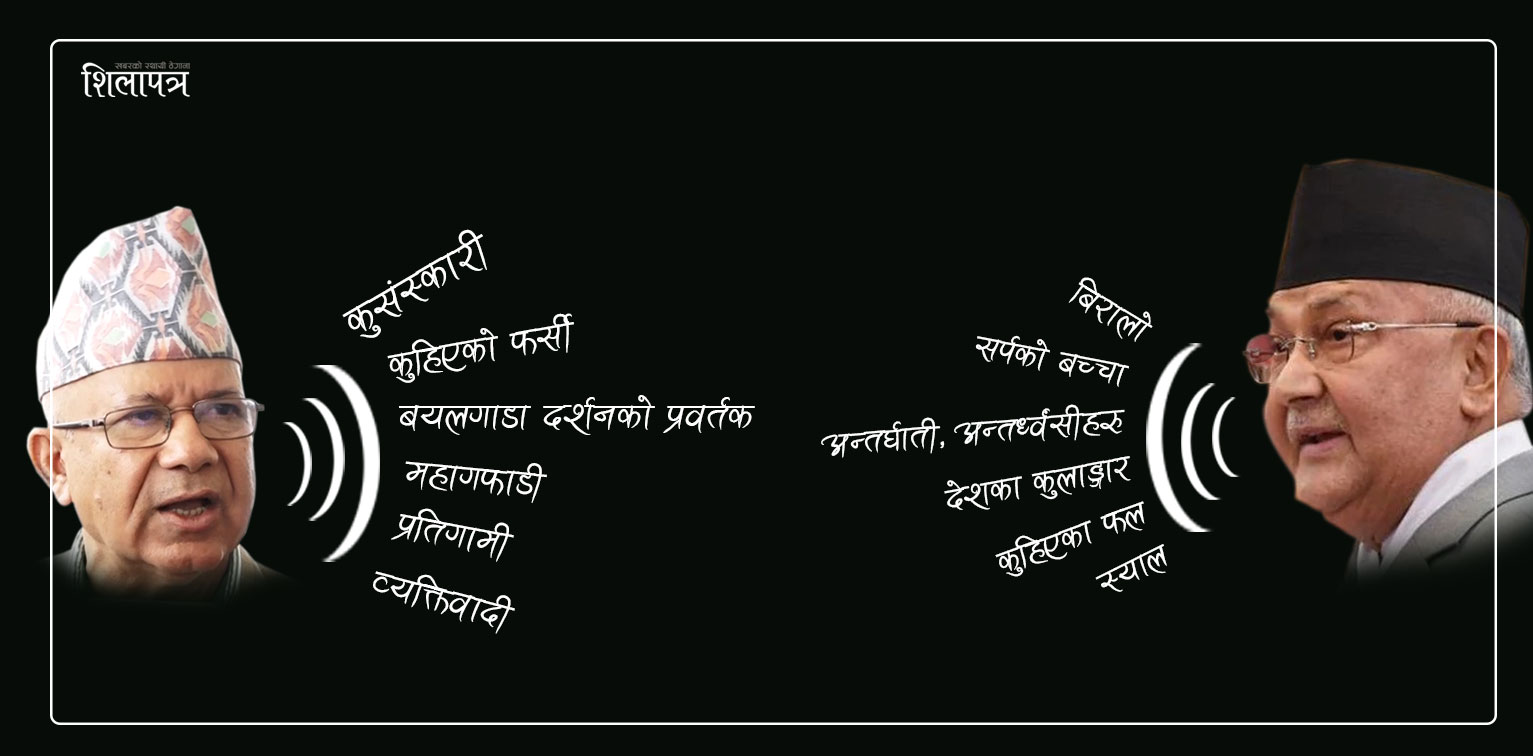 खबरको स्थायी ठेगाना
शिलापत्र
कुसंस्कारी
कुहिएको फर्सी
बयलगाडा दर्शनको प्रवर्तक
महागफाडी
प्रतिगामी
व्यक्तिवादी
बिरालो
सर्पको बच्चा
अन्तर्घाती, अन्तर्ध्वंसीहरु
देशका कुलाङ्गार
कुहिएका फल
स्याल